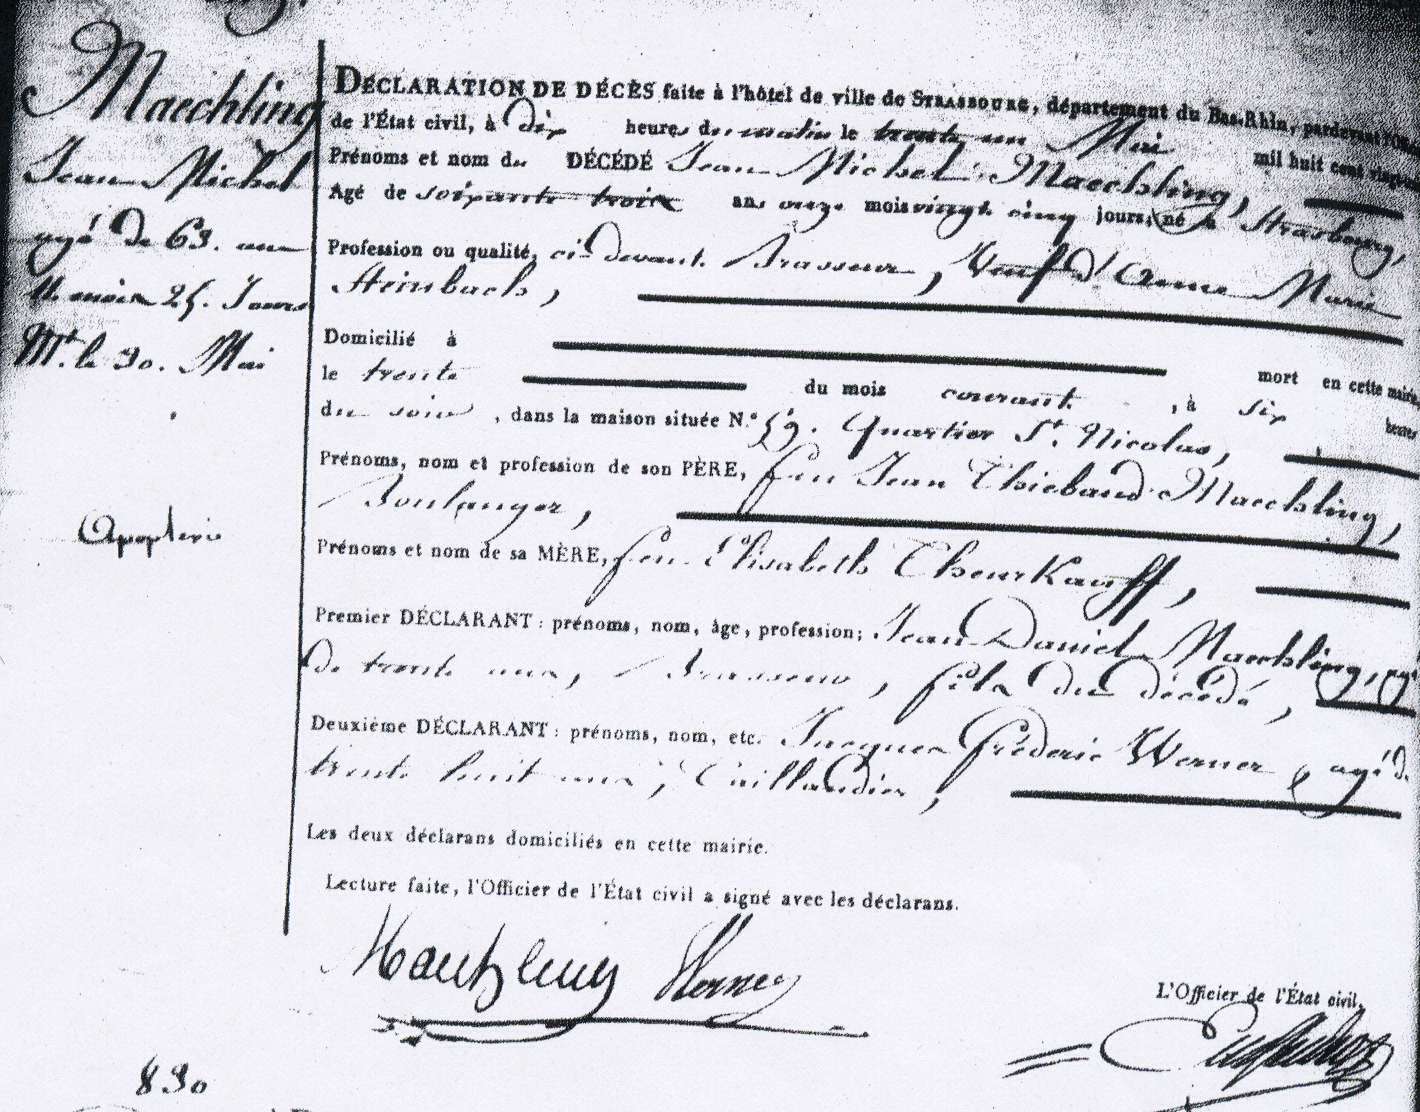 Maechling
Jean Michel
agé de 63. ans
11. mois 25. Jours
Mt. le 30. Mai
Apoplexie
DÉCLARATION DE DÉCÈS faite à l'hôtel de ville de STRASBOURG, département du Bas-Rhin, pardevant
de l'État civil, à dix heures du matin le trente un Mai mil huit cent
Prénoms et nom du DÉCÉDÉ Jean Michel Maechling,
Agé de soixante trois ans onze mois vingt cinq jours, né à Strasbourg,
Profession ou qualité, ci-devant Brasseur, Veuf d'Anne Marie
Steinbach,
Domicilié à mort en cette mairie,
le trente du mois courant, à six heures
du soir, dans la maison située N.° 59. Quartier St. Nicolas,
Prénoms, nom et profession de son PÈRE, feu Jean Thiebaud Maechling,
Boulanger,
Prénoms et nom de sa MÈRE, feu Elisabeth Theurkauff,
Premier DÉCLARANT : prénoms, nom, âge, profession; Jean Daniel Maechling, agé
de trente ans, Brasseur, fils du décédé,
Deuxième DÉCLARANT : prénoms, nom, etc. Jacques Fréderic Werner, agé de
trente huit ans, Taillandier,
Les deux déclarans domiciliés en cette mairie.
Lecture faite, l'Officier de l'État civil a signé avec les déclarans.
Maechling Werner
L'Officier de l'État civil,
830